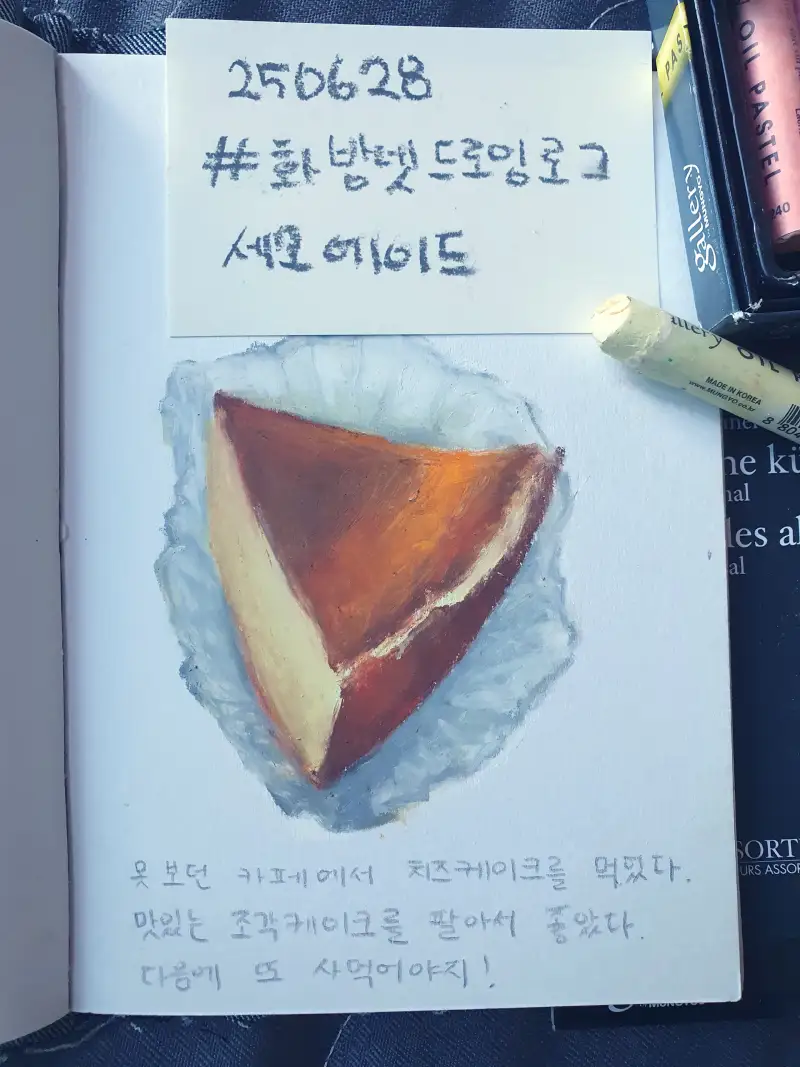 250628
#화밤넷드로잉로그
세모에이드
못 보던 카페에서 치즈케이크를 먹었다.
맛있는 조각케이크를 팔아서 좋았다.
다음에 또 사먹어야지!
PAS
gallery
MUNGYO
OIL PASTEL
240
llery OIL
MADE IN KOREA
www.MUNGYO.co.kr
8 80
ne kü
nal
les al
al
SORT
URS ASSOR
MUNGYO